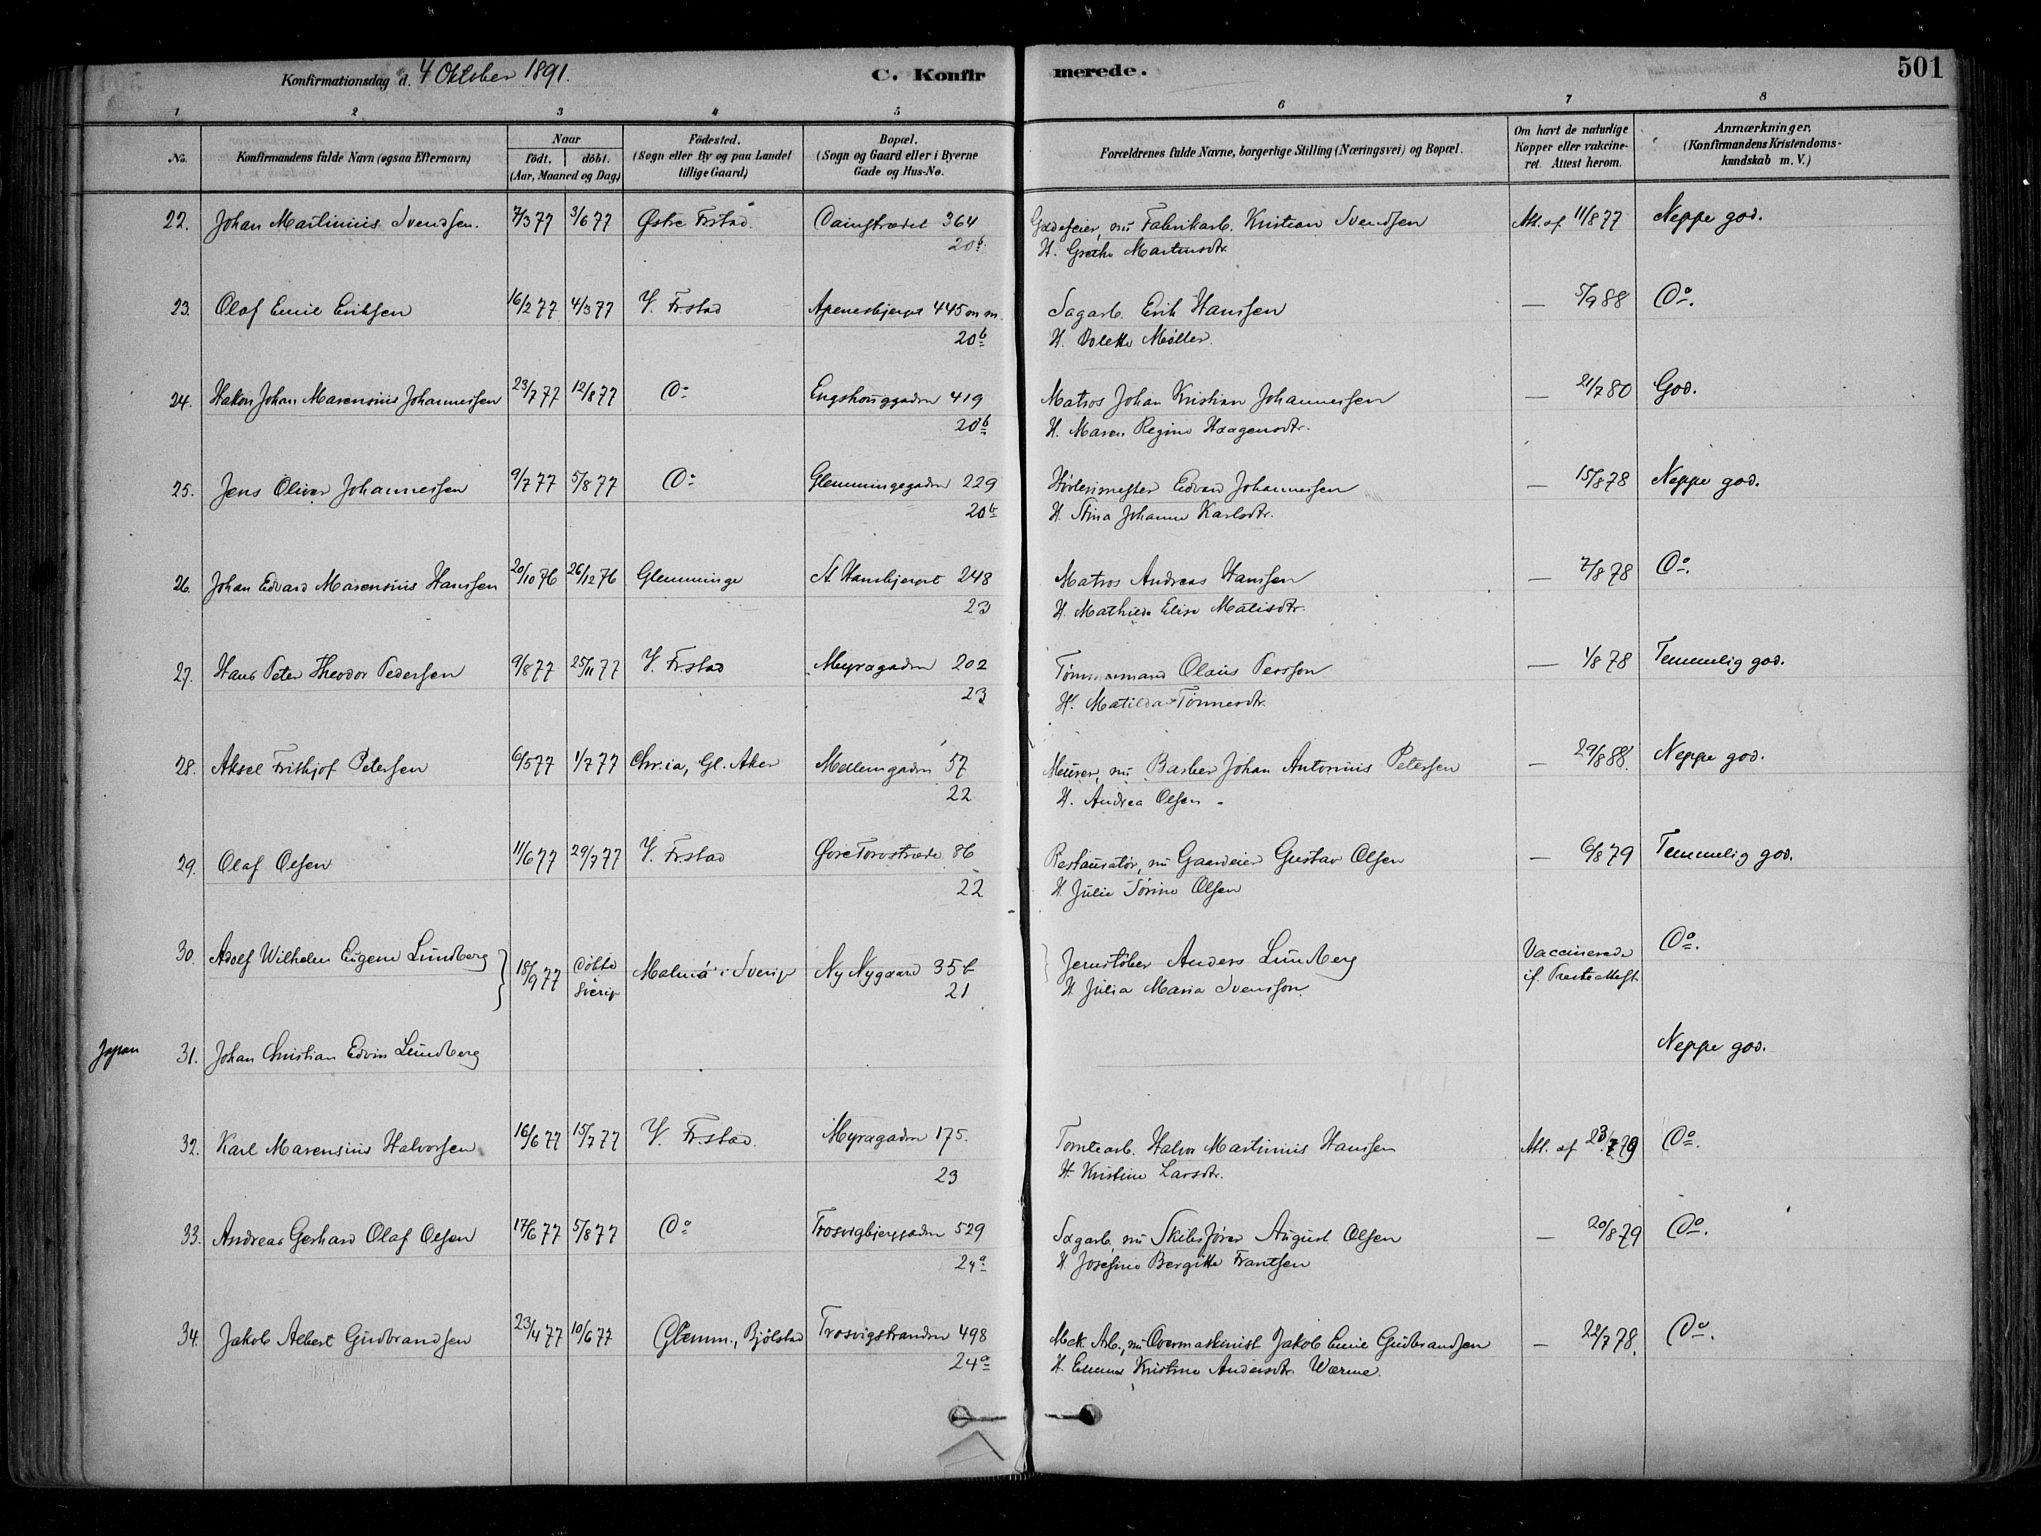 Konfirmationsdag d. 4 Oktober 1891.
C. Konfirmerede.
501
1 2 3 4 5 6 7 8
No.
Konfirmandens fulde Navn (ogsaa Efternavn)
Naar
födt. döbt.
(Aar, Maaned og Dag)
Födested.
(Sogn eller By og paa Landet
tillige Gaard)
Bopæl.
(Sogn og Gaard eller i Byerne
Gade og Hus-No.
Forældrenes fulde Navne, borgerlige Stilling (Næringsvei) og Bopæl.
Om havt de naturlige
Kopper eller vaccine-
ret. Attest herom.
Anmærkninger.
(Konfirmandens Kristendoms-
kundskab m. V.)
22. Johan Martinius Svendsen. 7/3 77 3/6 77 Østre Fr.stad 364 Gadefeier, nu Fabrikarb. Kristian Svendsen Att. af 11/8 77 Neppe god.
20b H. Grethe Martinsdtr.
23. Olaf Emil Eriksen 16/2 77 4/3 77 V. Fr.stad Apenesbjerget 445 m m. Sagarb. Erik Hanssen — 5/9 88 Do.
20b H. Dolette Møller.
24. Hakon Johan Marensius Johannessen 23/7 77 12/8 77 Do Engshouggaden 419 Matros Johan Kristian Johannessen — 21/7 80 God.
20b H. Maren Regine Haagensdtr.
25. Jens Oliver Johannessen 9/7 77 5/8 77 Do Glemmingegaden 229 Edvard Johannessen — 15/8 78 Neppe god.
20b H. Stina Johanne Karlsdtr.
26. Johan Edvard Marensius Hanssen 20/10 76 26/12 76 Glemminge St Hansbjerget 248 Matros Andreas Hanssen — 7/8 78 Do.
23 H. Mathilde Elise Matisdtr.
27. Hans Peter Theodor Pedersen 9/8 77 25/11 77 V. Fr.stad Myragaden 202 Tømmermand Olaus Persson — 1/8 78 Temmelig god.
23 H. Matilda Tønnesdtr.
28. Aksel Frithjof Petersen 6/5 77 1/7 77 Chr.ia, Gl. Aker Mellemgaden 57 Murer, nu Barber Johan Antonius Petersen — 29/8 88. Neppe god.
22 H. Andrea Olsen
29. Olaf Olsen 11/6 77 29/7 77 V. Fr.stad Øvre Torvstræde 86 Restauratør, nu Gaardeier Gustav Olsen — 6/8 79 Temmelig god.
22 H. Julie Sørine Olsen
30. Adolf Wilhelm Eugene Lundberg 18/9 77 Døbt Malmø i Sverig Ny Nygaard 35b Jernstøber Anders Lundberg Vaccinerede Do.
Sverig 21 H Julia Maria Svensson. if. Præsteattest
Japan 31. Johan Christian Edvin Lundberg Neppe god.
32. Karl Marensius Halvorsen 16/6 77 15/7 77 V. Fr.stad. Myragaden 175. Tomtearb. Halvor Martinius Hanssen Att. af 23/7 79 Do.
23 H Kristine Larsdtr.
33. Andreas Gerhard Olaf Olsen 17/6 77 5/8 77 Do Trosvigbjerggaden 529 Sagarb, nu Skibsfører August Olsen — 20/8 79 Do.
24a H Josefine Bergitte Frantsen
34. Jakob Albert Gudbrandsen 23/4 77 10/6 77 Glemm., Bjølstad Trosvigstranden 498 Mek. Arb., nu Overmaskinist Jakob Emil Gudbrandsen — 22/7 78. Do.
24a H. Emma Kristine Andersdtr. Wærme.